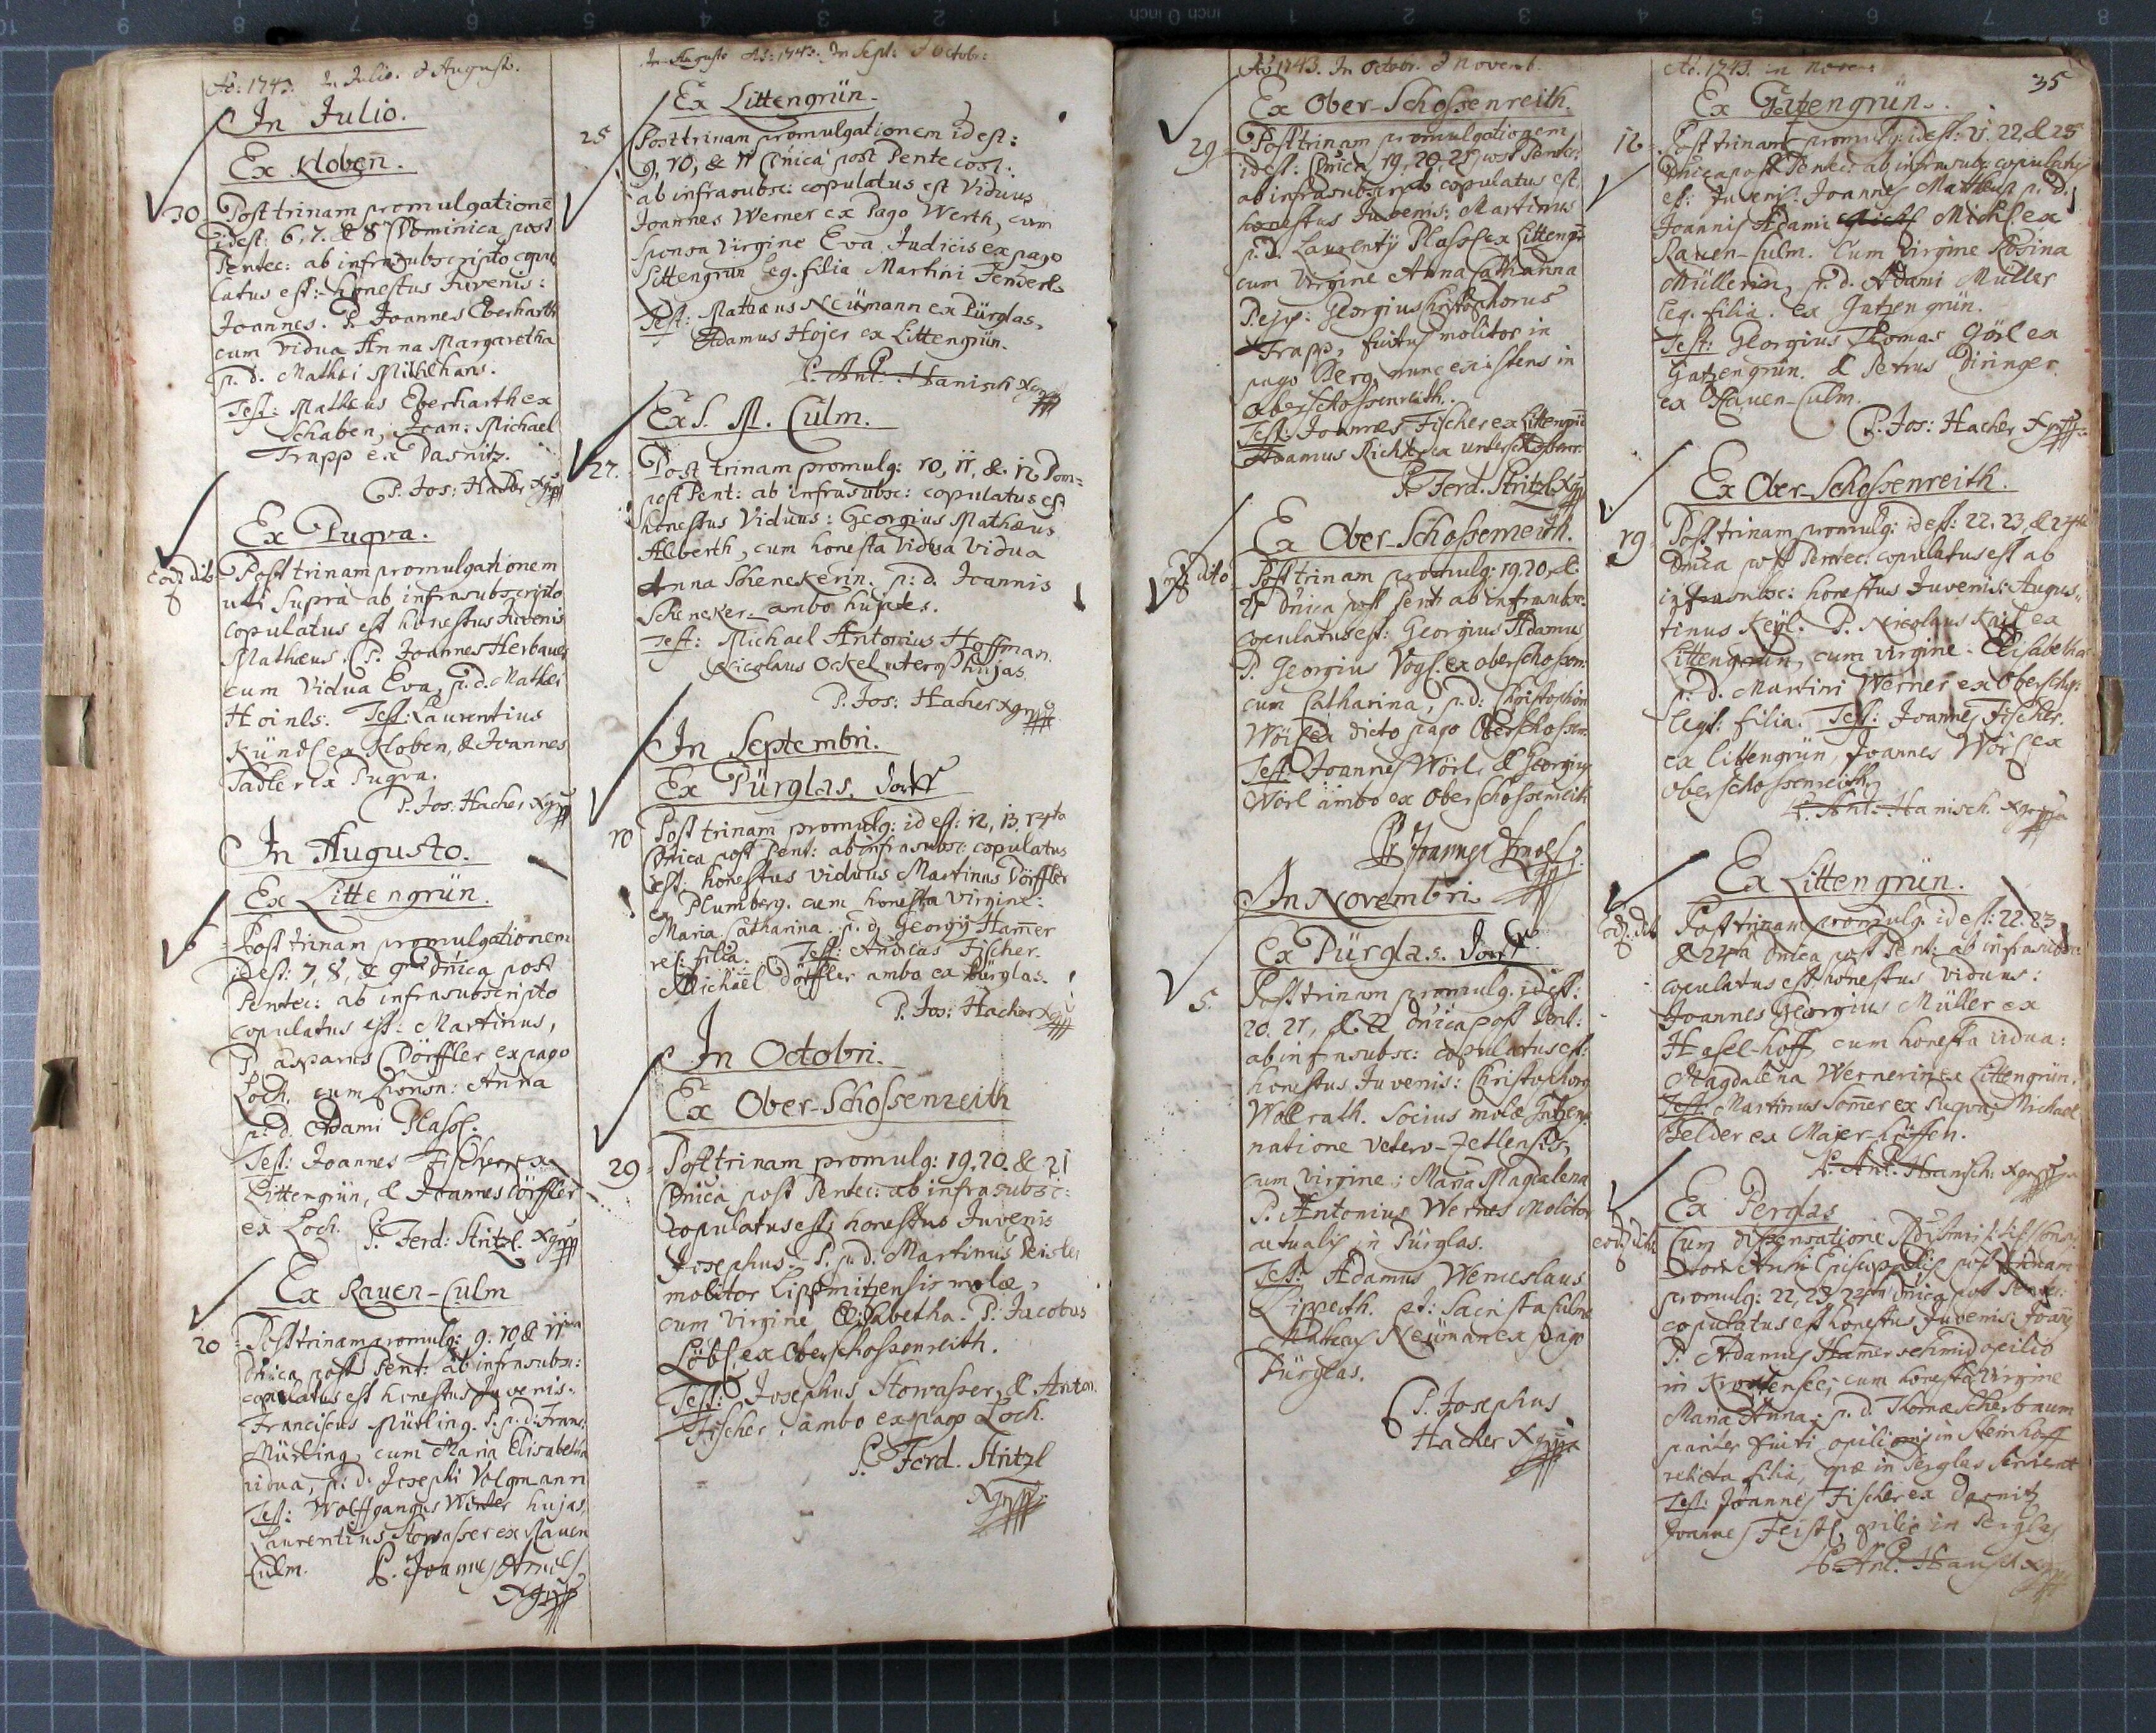 Aõ: 1743. In Julio. & Augusto.
In Julio.
Ex Kloben.
30 Post trinam promulgatione
idest: 6, 7. & 8 Dominica post
Pentec: ab infrasubscripto copu
latus est: honestus Juvenis:
Joannes. P. Joannes Eberharth
cum vidua Anna Margaretha
p. d. Mathei
Test: Matheus Eberharth ex
Schaben, Joan: Michael
Trapp ex Dasnitz.
P. Jos: Hacher
Ex Pugra.
Post trinam promulgationem
uti supra ab infrasubscripto
copulatus est honestus Juvenis
Mathæus. P. Joannes Herbauer
cum Vidua Eva, p. d. Mathei
Hoinls: Test: Laurentius
Kündl ex Kloben, & Joannes
Sadler ex Pugra.
P. Jos: Hacher
In Augusto.
Ex Littengrün.
6 Post trinam promulgationem
idest: 7, 8, & 9 dnica post
Pentec: ab infrasubscripto
copulatus est: Martinus,
P. asparus Dörffler ex pago
Loch. cum sponsa: Anna
p: d. Adami Plassl.
Test: Joannes Fischer ex
Littengrün, & Joannes Dörffler
ex Loch. P. Ferd: Stritzl.
Ex Rauen-Culm
20 Post trinam promulg: 9. 10 & 11ma
Dnica post Pent: ab infrasubsc:
copulatus est honestus Juvenis:
Franciscus Mürling. P. p. d. Frans.
Mürling, cum Maria Elisabetha
vidua, p: d: Josephi Volgmann
Test: Wolffgangus Winter hujas,
Laurentius Stowasser ex Rauen
Culm. P. Joannes
In Augusto Aõ: 1743. In Sept: & Octobr:
Ex Littengrün.
25 Post trinam promulgationem idest:
9, 10, & 11 Dnica post Pentecost:
ab infrasubsc: copulatus est Viduus
Joannes Werner ex Pago Werth, cum
sponsa Virgine Eva Judicis ex pago
Littengrün leg. filia Martini Fenderls
Test: Mathæus Neümann ex Pürglas,
Adamus Hojer ex Littengrün.
P. Ant: Hanisch
Ex S. M. Culm.
27. Post trinam promulg: 10, 11, & 12 Dom=
post Pent: ab infrasubsc: copulatus est
honestus Viduus: Georgius Mathæus
Alberth, cum honesta Vidua vidua
Anna Schenekerin. p: d. Joannis
Scheneker. ambo hujates.
Test: Michael Antonius Hoffman.
Nicolaus Ockel uterq hujas.
P. Jos: Hacher
In Septembri.
Ex Pürglas. Dorff
10 Post trinam promulg: idest: 12, 13, 14ta
Dnica post Pent: ab infrasubsc: copulatus
est, honestus viduus Martinus Dörffler
ex Plumberg. cum honesta Virgine:
Maria Catharina. p. d. Georgij Hamer
rel: filia. Test: Andreas Fischer.
Michael Dörffler ambo ex Pürglas.
P. Jos: Hacher
In Octobri.
Ex Ober-Schossenreith
29 Post trinam promulg: 19. 20. & 21
Dnica post Pentec: ab infrasubsc:
copulatus est: honestus Juvenis
Josephus. P. p. d. Martinus
molitor Lippnitzensis molæ,
cum Virgine Elisabetha. P: Jacobus
Löbl, ex Oberschossenreith.
Test: Josephus Stowasser, & Anton.
Fischer, ambo ex pago Loch.
P. Ferd. Stritzl
Aõ 1743. In Octobr. & Novemb.
Ex Ober-Schossenreith.
29 Post trinam promulgationem
idest: Dnica 19, 20, 21 post Pentec:
ab infrasubscripto copulatus est
honestus Juvenis: Martinus
p. d. Laurentij Plassl ex Litteng:
cum Virgine Anna Catharina
P. ejus: Georgius Christophorus
Trapp, fuitus molitor in
pago Berg, nunc existens in
oberschossenreith.
Test: Joannes Fischer ex Littengrün
Adamus Richter ex
P. Ferd. Stritzl
Ex Ober-Schossenreith.
Post trinam promulg: 19. 20. &
21 dnica post Pent: ab infrasubsc:
copulatus est: Georgius Adamus
P. Georgius Vogl. ex oberschossen:
cum Catharina, p. d: Christophori
Wörl ex dicto pago Oberschossen.
Test: Joannes Wörl, & Georgius
Wörl ambo ex Oberschossenreith
Pr Joannes
In Novembri.
Ex Pürglas. Dorff.
5. Post trinam promulg. idest:
20. 21, & 22 dnica post Pent:
ab infrasubsc: copulatus est:
honestus Juvenis: Christophorg
Wollrath. Socius molæ
natione vetero-Zetlensis,
cum Virgine: Maria Magdalena
P. Antonius Wernes Molitor
actualis in Pürglas.
Test: Adamus Wenceslaus
Lipperth.
Matheus Neümann ex pago
Pürglas.
P. Josephus
Hacher
Aõ. 1743. in Novem 35
Ex Gatzengrün.
12 Post trinam promulg: idest: 21. 22, & 23
Dnica post Pentec: ab infrasubsc: copulatus
est: Juvenis: Joannes Matheus p. D.
Joannis Adami Michl ex
Rauen-Culm. Cum Virgine Rosina
Müllerin, p. d. Adami Müller
leg. filia. ex Gatzengrün.
Test: Georgius Thomas Görl ex
Gatzengrün. & Petrus Diringer
ex Rauen-Culm.
P. Jos: Hacher
Ex Ober-Schossenreith.
19 Post trinam promulg: idest: 22, 23, & 24ta
Dnica post Pentec: copulatus est ab
infrasubsc: honestus Juvenis: Augus,,
tinus Keyl. P. Nicolaus Kail ex
Littengrün, cum virgine: Elisabetha
p: d. Martini Werner ex Obersch:
legt. filia. Test: Joannes Fischer.
ex Littengrün, Joannes Wörl ex
oberschossenreith
P. Ant: Hanisch.
Ex Littengrün.
Post trinam promulg. idest: 22. 23
& 24ta Dnica post Pent: ab infrasubsc:
copulatus est honestus Viduus:
Joannes Georgius Müller ex
Hasel-hoff, cum honesta vidua:
Magdalena Wernerin ex Littengrün.
Test: Martinus Somer ex Pugra, Michael
Felder ex Majer-höffen.
P. Ant: Hanisch.
Ex Perglas
Cum dispensatione
post trinam
promulg: 22, 23, 24ta dnica post Pentec:
copulatus est honestus Juvenis Joannes
P. Adamus Hamerschmid opilio
in cum honesta Virgine
Maria Anna: p. d. Thomæ Scherbaum
pariter fuiti opilionis in Steinhoff
relicta filia, quæ in Perglas
Test: Joannes Fischer ex
Joannes Feistl, opilio in Perglas
P. Ant. Hanisch